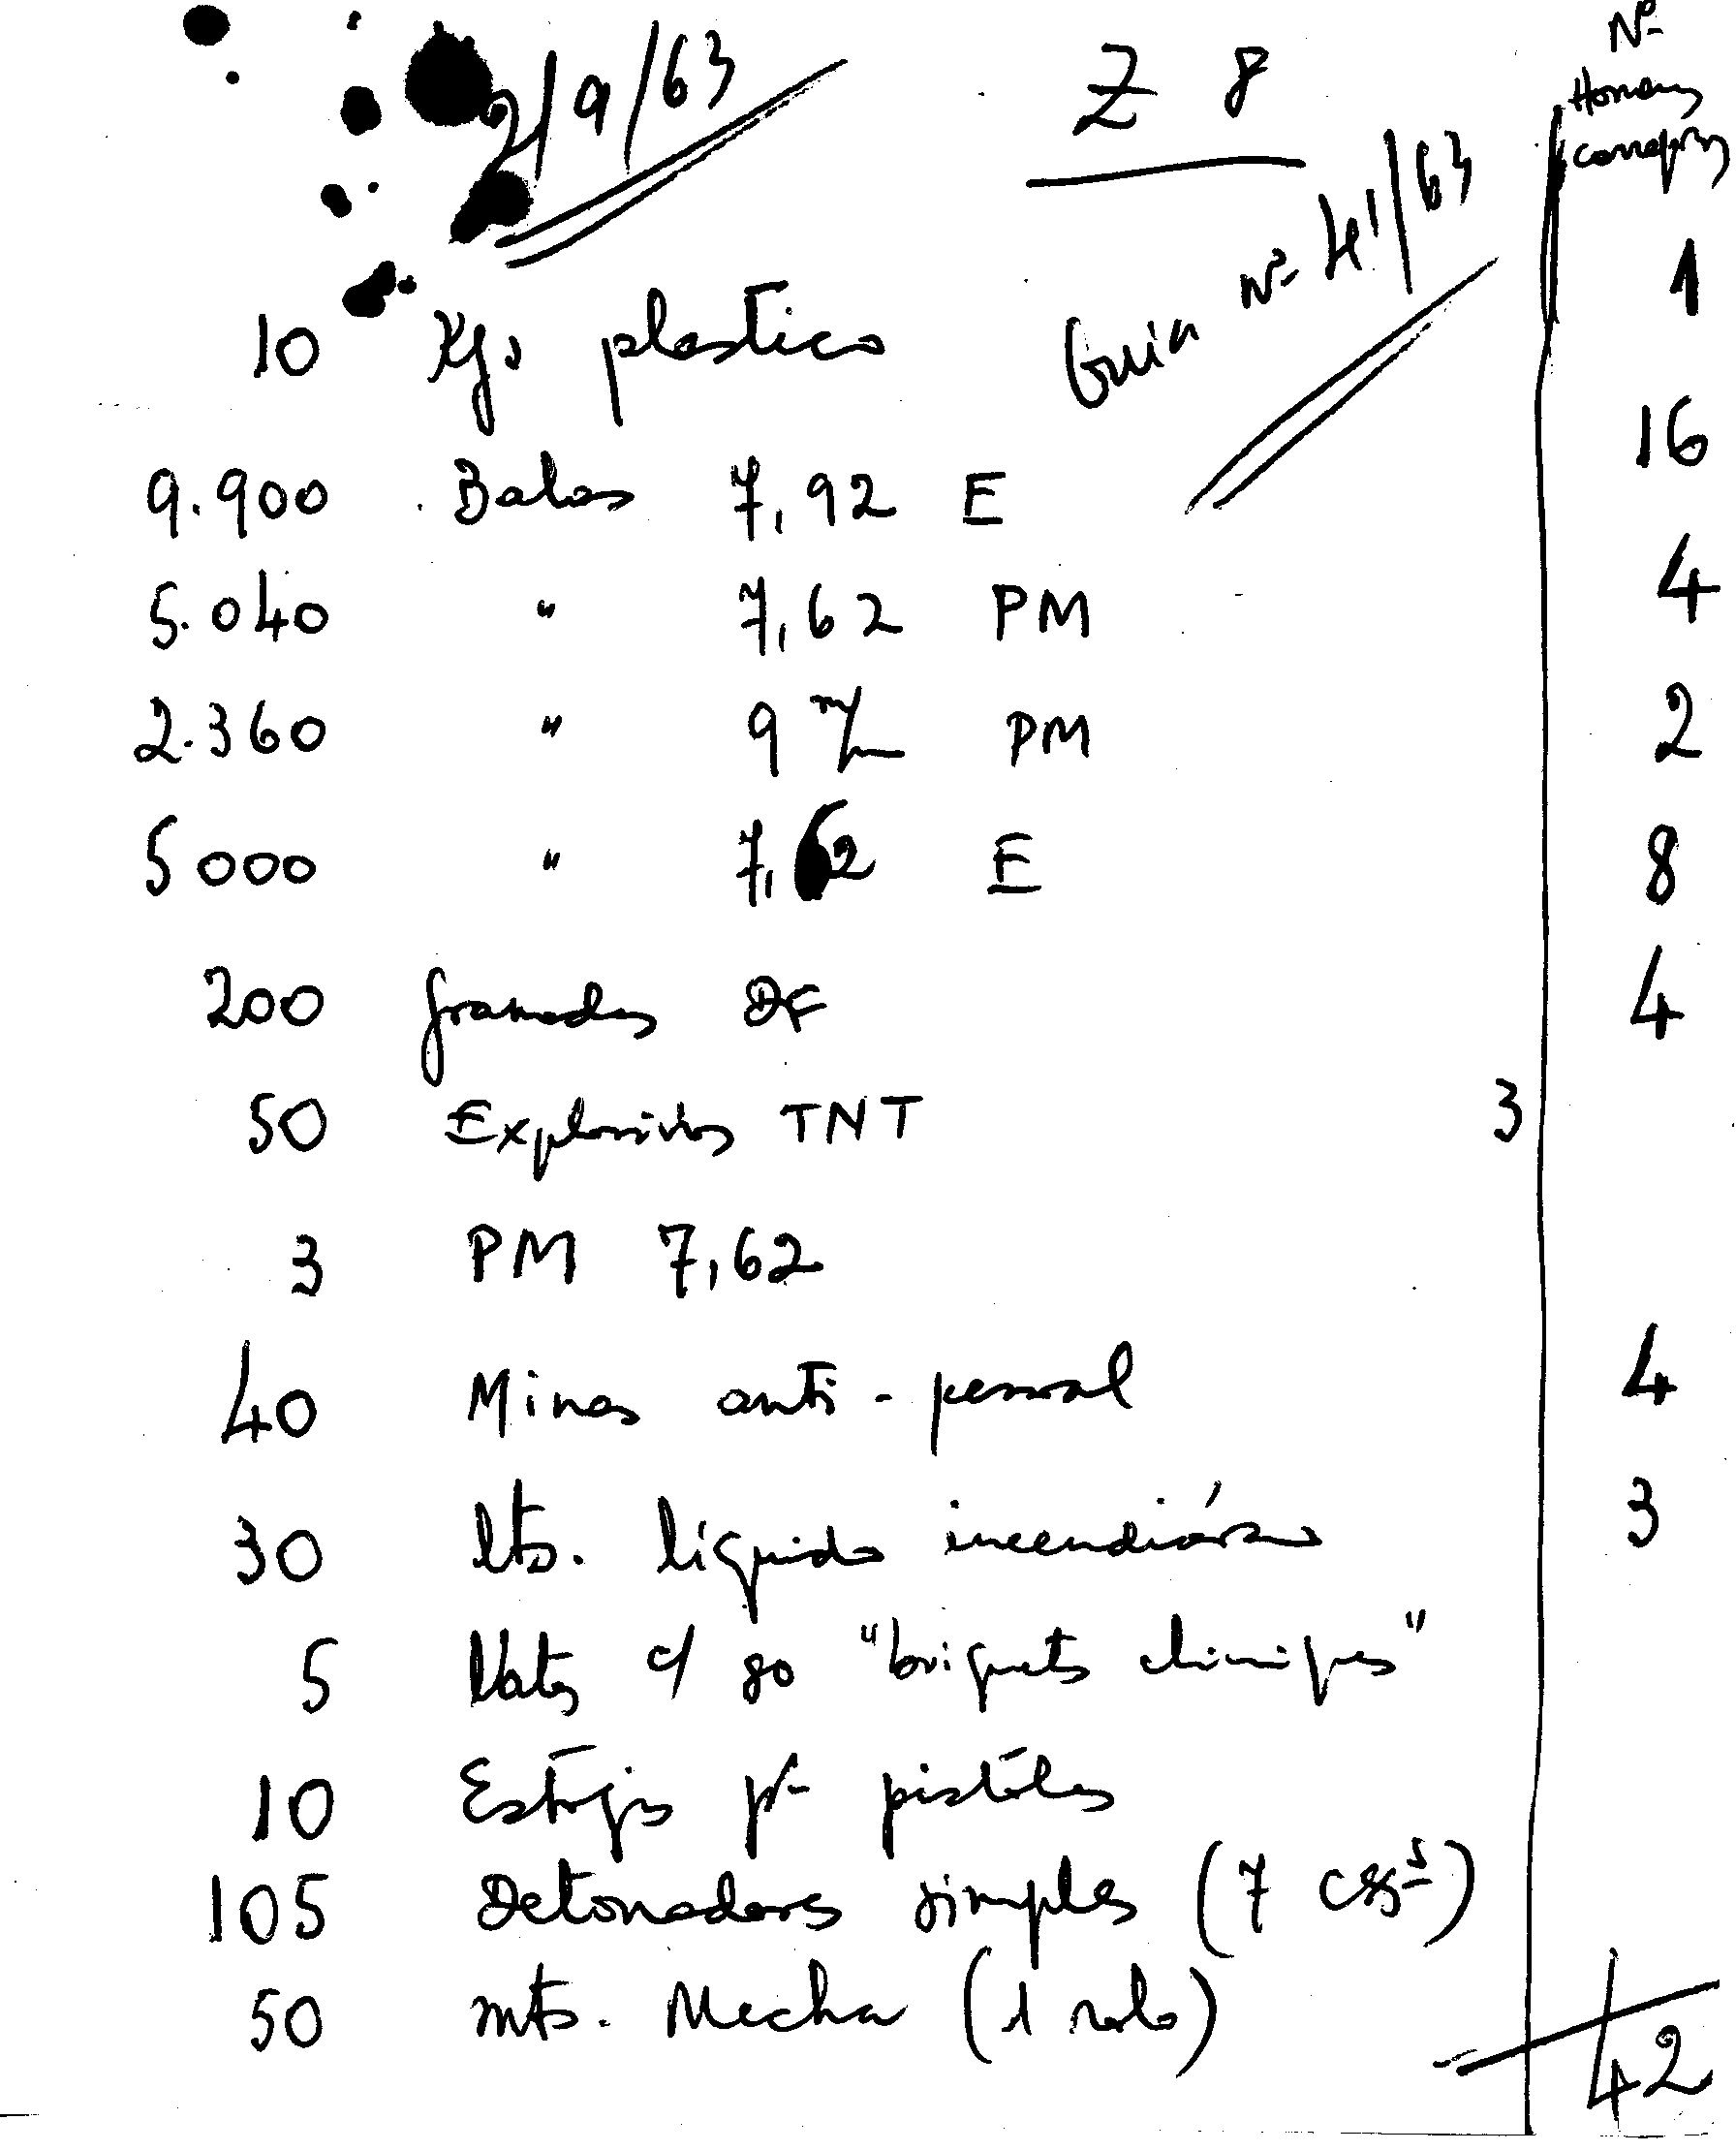 2/9/63
Z 8
Nº
Homens
Guia Nº 41/63
10 Kgs plastico 1
9.900 Balas 7,92 E 16
5.040 " 7,62 PM 4
2.360 " 9 m/m PM 2
5000 " 7,62 E 8
200 granadas DF 4
50 Explosivos TNT 3
3 PM 7,62
40 Minas anti-pessoal 4
30 lts. líquido incendiário 3
5 c/ 80 "briquets chimiques"
10 Estojos pª pistólas
105 Detonadores simples (7 css)
50 mts. Mecha (1 rolo)
42